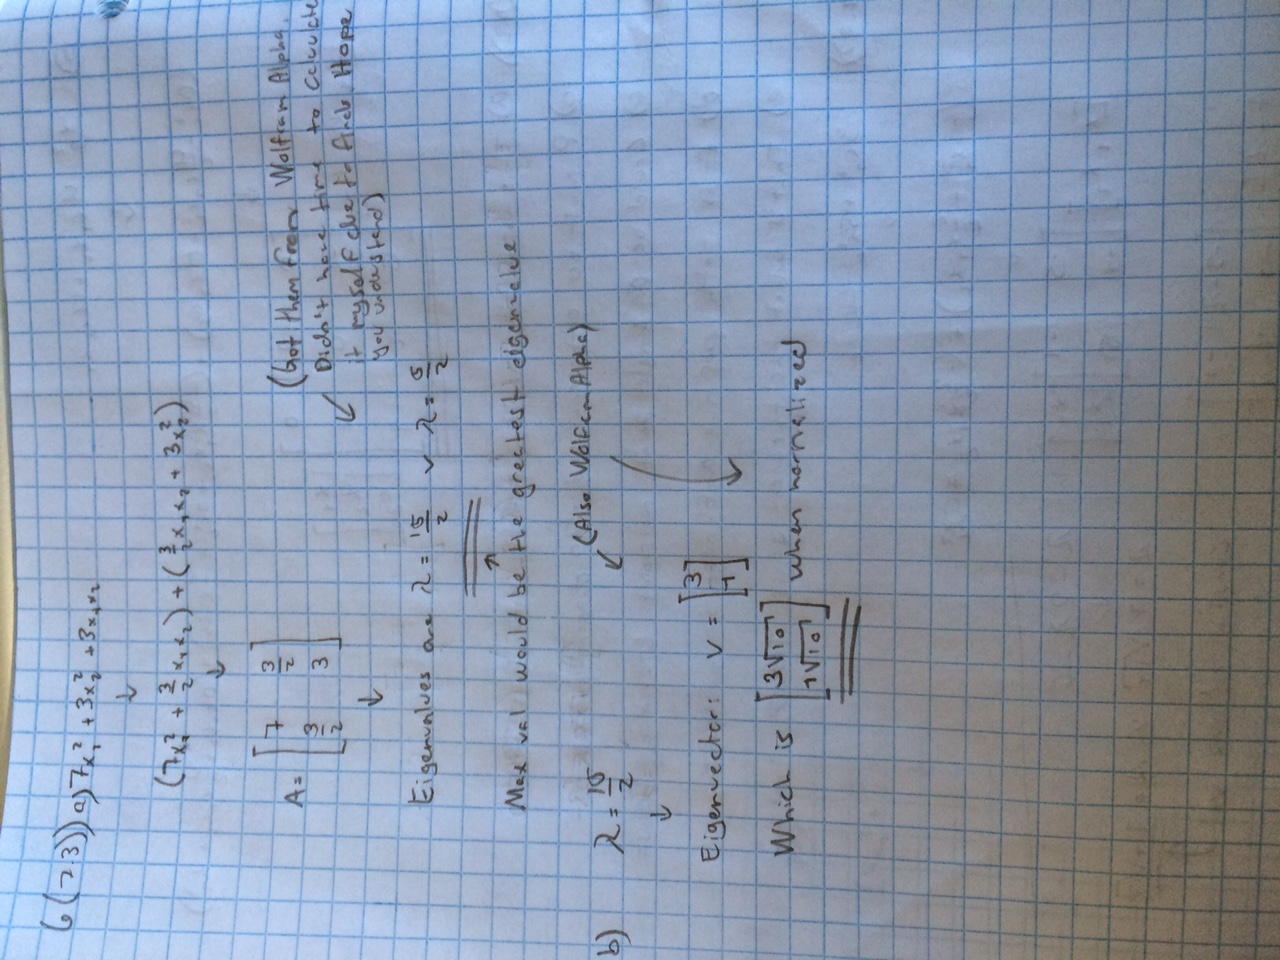 6(7.3)) a) 7x₁² + 3x₂² + 3x₁x₂
↓
(7x₁² + 3/2 x₁x₂) + (3/2 x₁x₂ + 3x₂²)
↓
A = [7 3/2; 3/2 3]
(Got them from Wolfram Alpha.
Didn't have time to calculate
it myself due to finals. Hope
you understand)
↓
Eigenvalues are λ = 15/2 ∨ λ = 5/2
Max val would be the greatest eigenvalue
(Also Wolfram Alpha)
b) λ = 15/2
↓
Eigenvector: v = [3; 1]
Which is [3√10; 1√10] when normalized